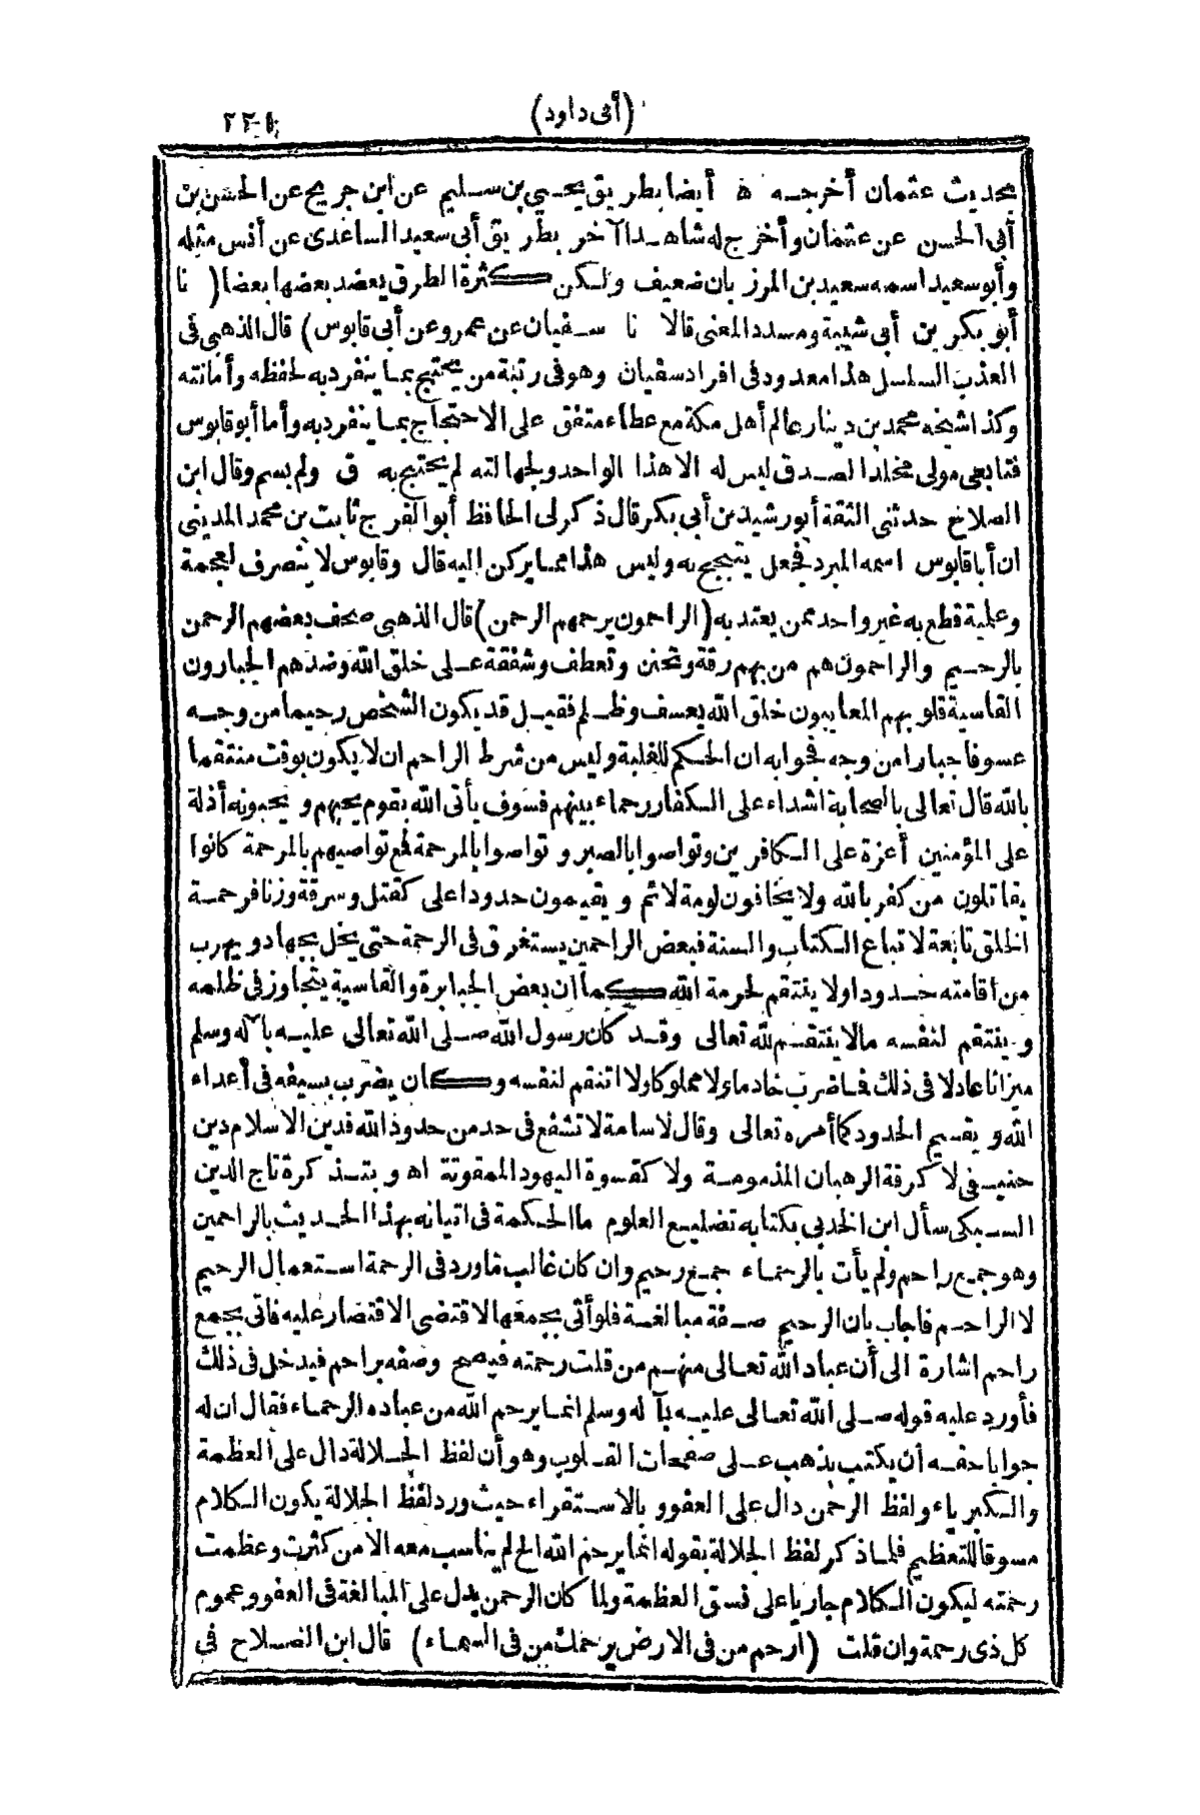 (أبى داود)
٢٢١
بحديث عثمان أخرجه ه أيضا بطريق يحيي بن سليم عن ابن جريج عن الحسن بن
أبى الحسن عن عثمان وأخرج له شاهدا آخر بطريق أبى سعيد الساعدى عن أنس مثله
وأبو سعيد اسمه سعيد بن المرزبان ضعيف ولكن كثرة الطرق يعضد بعضها بعضا ( نا
أبو بكر بن أبى شيبة ومسدد المعنى قالا نا سفيان عن عمرو عن أبى قابوس ) قال الذهبى فى
العذب السلسل هذا معدود فى افراد سفيان وهو فى رتبة من يحتج بما ينفرد به لحفظه وأمانته
وكذا شيخه محمد بن دينار عالم أهل مكة مع عطاء متفق على الاحتجاج بما ينفرد به وأما أبو قابوس
فتابعى مولى مخلد الصدق ليس له الا هذا الواحد ولجهالته لم يحتج به ق ولم يسم وقال ابن
الصلاح حدثنى الثقة أبو رشيد بن أبى بكر قال ذكر لى الحافظ أبو الفرج ثابت بن محمد المدينى
ان أبا قابوس اسمه المبرد فجعل يتبجح به وليس هذا مما يركن اليه قال وقابوس لا ينصرف لعجمة
وعلمية قطع به غير واحد ممن يعتد به (الراحمون يرحمهم الرحمن) قال الذهبى صحف بعضهم الرحمن
بالرحيم والراحمون هم من بهم رقة وتحنن وتعطف وشفقة على خلق الله وضدهم الجبارون
القاسية قلوبهم المعايبون خلق الله بعسف وظلم فقيل قد يكون الشخص رحيما من وجه
عسوفا جبارا من وجه فجوابه ان الحكم للغلبة وليس من شرط الراحم ان لا يكون بوقت منتقما
بالله قال تعالى بالصحابة اشداء على الكفار رحماء بينهم فسوف يأتى الله بقوم يحبهم ويحبونه أذلة
على المؤمنين أعزة على الكافرين وتواصوا بالصبر وتواصوا بالمرحمة فمع تواصيهم بالمرحمة كانوا
يقاتلون من كفر بالله ولا يخافون لومة لائم ويقيمون حدودا على كقتل وسرقة وزنا فرحمة
الخلق تابعة لاتباع الكتاب والسنة فبعض الراحمين يستغرق فى الرحمة حتى يخل بجهاد ويهرب
من اقامته حدودا ولا ينتقم لحرمة الله كما أن بعض الجبابرة والقاسية يتجاوز فى ظلمه
وينتقم لنفسه مالا ينتقم لله تعالى وقد كان رسول الله صلى الله تعالى عليه بآله وسلم
ميزانا عادلا فى ذلك فما ضرب خادما ولا مملوكا ولا انتقم لنفسه وكان يضرب بسيفه فى أعداء
الله ويقيم الحدود كما أمره تعالى وقال لاسامة لا تشفع فى حد من حدود الله فدين الاسلام دين
حنيفى لا كرقة الرهبان المذمومة ولا كقسوة اليهود الممقوتة اه وبتذكرة تاج الدين
السبكى سأل ابن الخدبى بكتابه تضليع العلوم ما الحكمة فى اتيانه بهذا الحديث بالراحمين
وهو جمع راحم ولم يأت بالرحماء جمع رحيم وان كان غالب ما ورد فى الرحمة استعمال الرحيم
لا الراحم فاجاب بان الرحيم صفة مبالغة فلو أتى بجمعها لاقتضى الاقتصار عليه فاتى بجمع
راحم اشارة الى أن عباد الله تعالى منهم من قلت رحمته فيصح وصفه براحم فيدخل فى ذلك
فأورد عليه قوله صلى الله تعالى عليه بآله وسلم انما يرحم الله من عباده الرحماء فقال ان له
جوابا حقه أن يكتب بذهب على صفحات القلوب وهو أن لفظ الجلالة دال على العظمة
والكبرياء ولفظ الرحمن دال على العفو وبالاستقراء حيث ورد لفظ الجلالة يكون الكلام
مسوقا للتعظيم فلما ذكر لفظ الجلالة بقوله انما يرحم الله الخ لم يناسب معه الا من كثرت وعظمت
رحمته ليكون الكلام جاريا على نسق العظمة ولما كان الرحمن يدل على المبالغة فى العفو وعموم
كل ذى رحمة وان قلت (ارحم من فى الارض يرحمك من فى السماء) قال ابن الصلاح فى